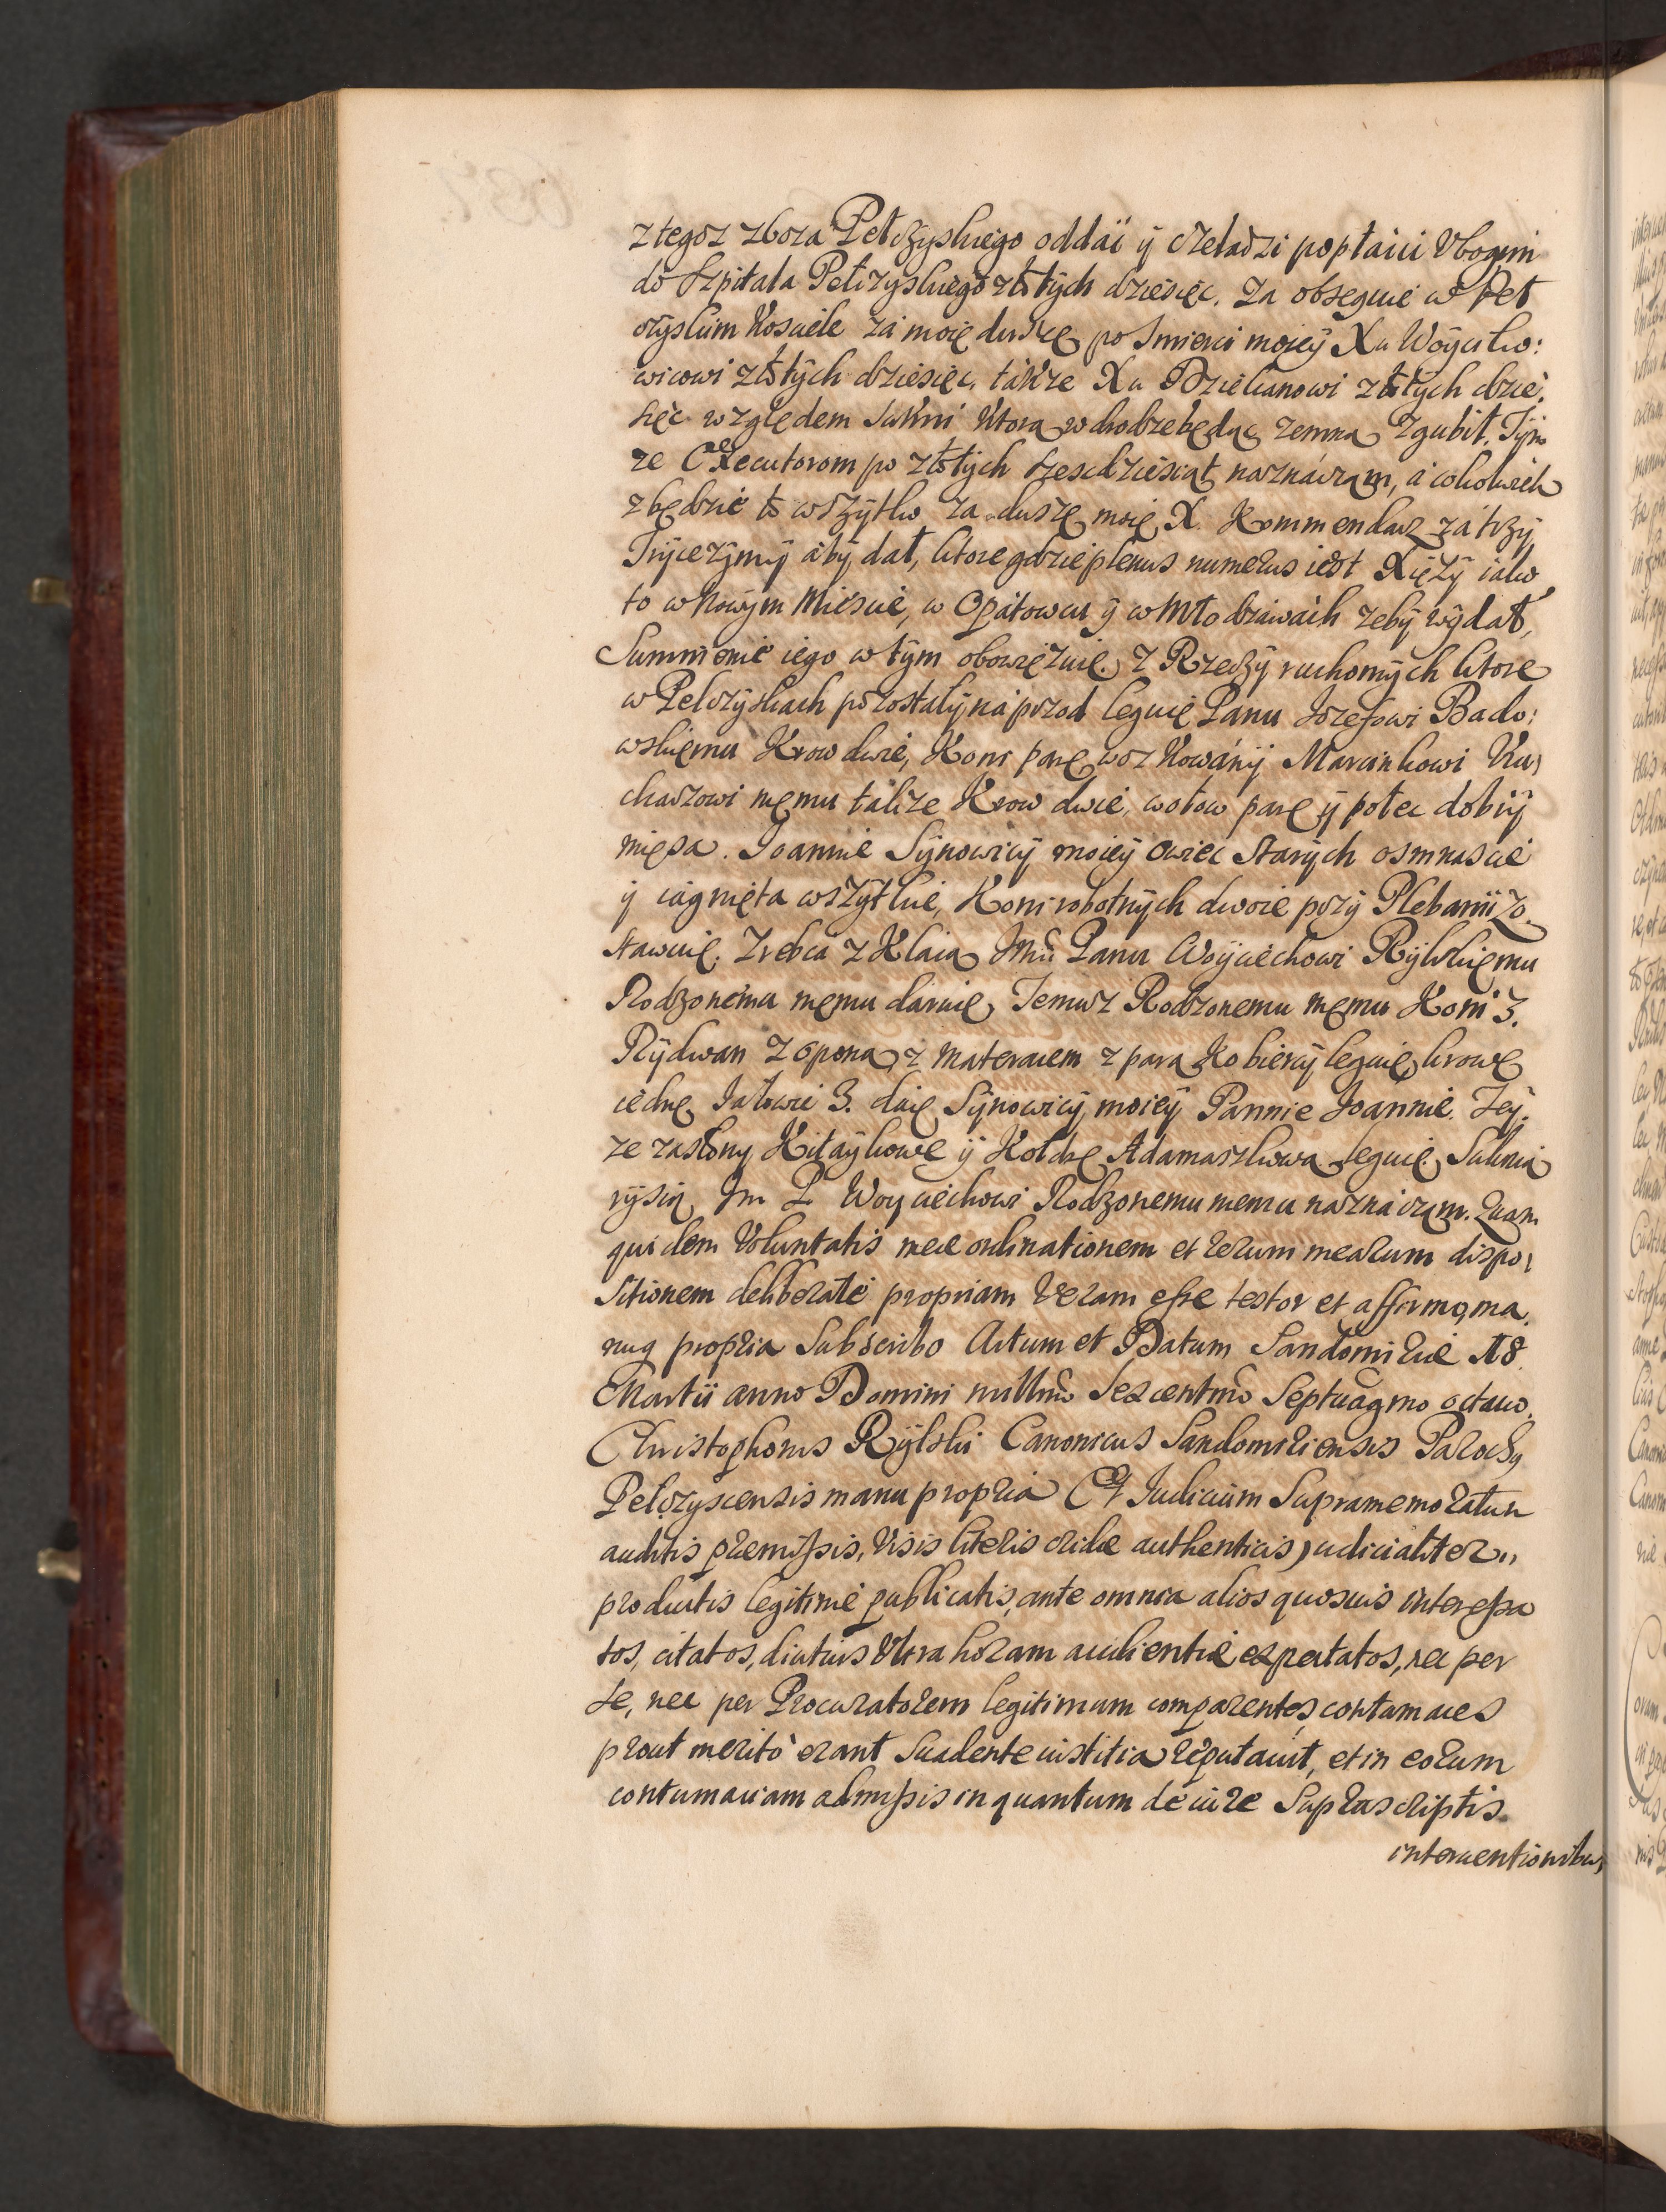 z tegosz zboza Pełczyskiego oddai y czeladzi popłaici Vbogim
do Szpitala Pełczyskiego złotych dziesięc. Za obsequie w Peł
czyskim Kosciele za moię duszę po Smierci moiey Xu Woycko:
wicowi złotych dziesięc, takze Xu Dziekanowi złotych dzie,
sięc względem Sukni ktorą w drodze będąc zemną zgubił. Tym
ze Executorom po złotych szesdziesiąt naznaczam, a cokolwiek
zbędzie to wszytko za duszę moię X. Kommendarz za trzy
Trycezymy aby dał, ktore gdzie plenus numerus iest Xięzy iako
to w Nowym Miescie, w Opatowcu y w Młodzawach zeby wydał,
Sumnienie iego w tym obowięzuię. Z Rzeczy ruchomych ktore
w Pełczyskach pozostały na przod leguię Panu Jozefowi Bado:
wskiemu Krow dwie, Koni parę woz Kowany Marcinkowi Ku,
charzowi męmu takze Krow dwie, wołow parę y połec dobry
mięsa. Joannie Synowicy moiey owiec Starych osmnascie
y iagnięta wszytkie, Koni robotnych dwoie przy Plebanii zo,
stawuię. Zrebca z Klaczą Jmci Panu Woyciechowi Rylskiemu
Rodzonemu męmu daruię, Temusz Rodzonemu męmu Koni 3.
Rydwan z oponą, z materacem z parą Kobiercy leguię, krowę
iednę Jałowic 3. daię Synowicy moiey Pannie Joannie. Tey,
ze zasłonę Kitaykowę y Kołdrę Adamaszkową leguię. Suknią
rysią Jm P Woyciechowi Rodzonemu memu naznaczam. Quam
quidem Voluntatis meæ ordinationem et rerum mearum dispo,
sitionem deliberatè propriam Veram esse testor et affirmo, ma,
nuq propria Subscribo Actum et Datum Sandomiriæ 18.
Martii anno Domini millmo Sexcentmo Septuagmo octauo.
Christophorus Rylski Canonicus Sandomiriensis Parochq
Pełczyscensis manu propria Et Iudicium Supramemoratum
auditis præmissis, Visis literis cridæ authenticis judicialiter
productis legitimè publicatis, ante omnia alios quosuis interessa
tos, citatos, diutius Vltra horam audientiæ expectatos, nec per
se, nec per Procuratorem legitimum comparentes, contumaces
prout meritò erant Suadente iustitia reputauit, et in eorum
contumaciam admissis in quantum de iure Suprascriptis
interuentionibus